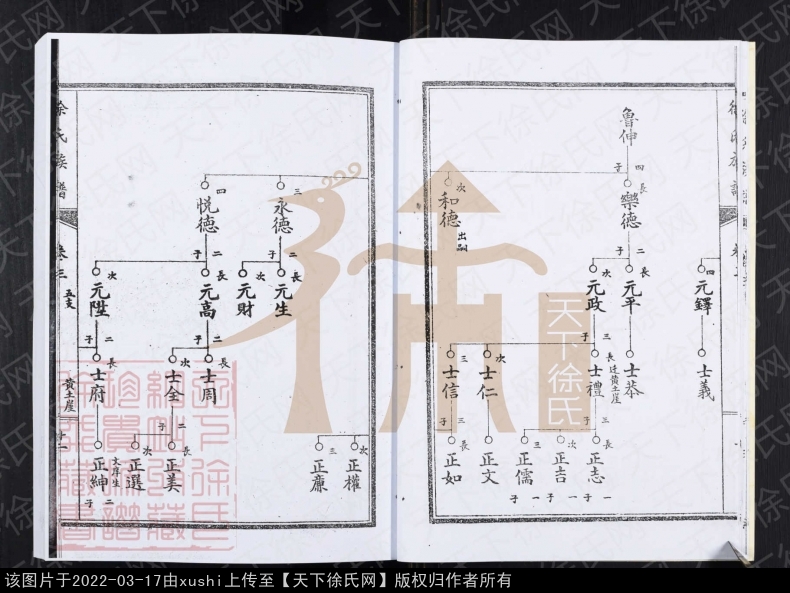 魯仲
四子
長
樂德
次
和德
出嗣
二子
長
元平
次
元政
四
元鐸
士義
士恭
三子
長
士禮
遷黄土崖
次
士仁
三
士信
三子
長
正志
次
正吉
三
正儒
正文
子
長
正如
一子
一子
徐氏族譜
卷三
五支
黄土崖
三
永德
四
悦德
二子
長
元生
次
元財
二子
長
元高
次
元陞
二子
長
士周
次
士全
二子
長
士府
二子
長
正美
次
正選
太序生
正紳
二子
次
正權
三
正廉
天下徐氏
天下徐氏网
该图片于2022-03-17由xushi上传至【天下徐氏网】版权归作者所有